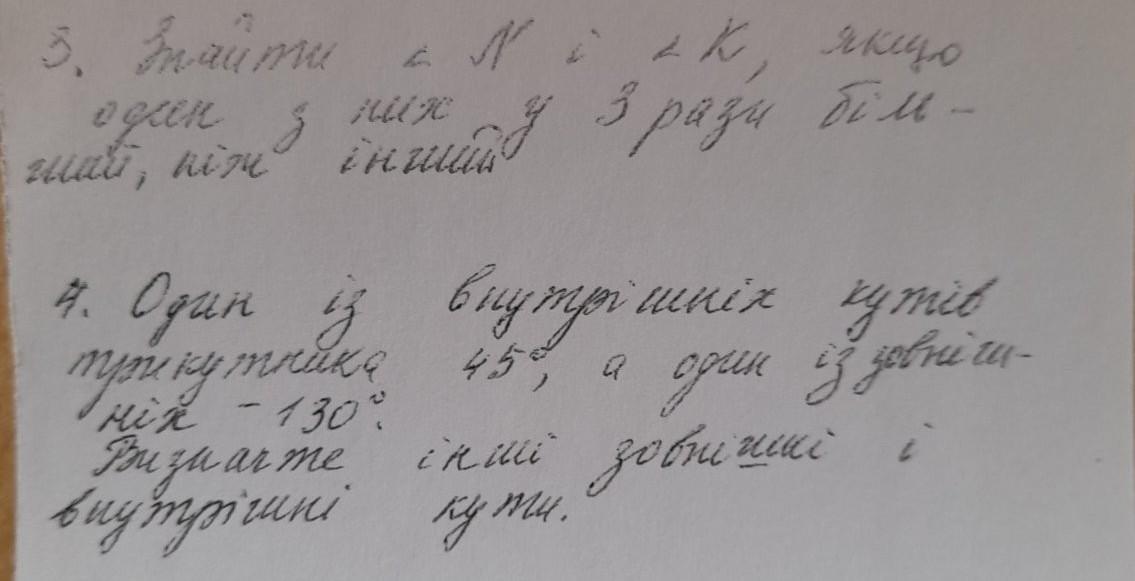 3. Знайти ∠ N і ∠ K, якщо
один з них у 3 рази біль-
ший, ніж інший
4. Один із внутрішніх кутів
трикутника 45°, а один із зовніш-
ніх - 130°.
Визначте інші зовнішні і
внутрішні кути.